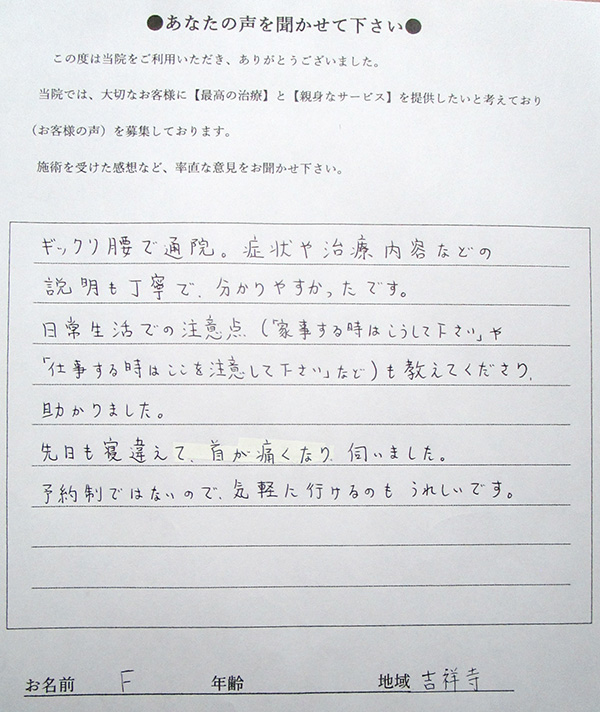 ●あなたの声を聞かせて下さい●
この度は当院をご利用いただき、ありがとうございました。
当院では、大切なお客様に【最高の治療】と【親身なサービス】を提供したいと考えており
（お客様の声）を募集しております。
施術を受けた感想など、率直な意見をお聞かせ下さい。
ギックリ腰で通院。症状や治療内容などの
説明も丁寧で、分かりやすかったです。
日常生活での注意点（「家事する時はこうして下さい」や
「仕事する時はここを注意して下さい」など）も教えてくださり、
助かりました。
先日も寝違えて、首が痛くなり、伺いました。
予約制ではないので、気軽に行けるのもうれしいです。
お名前 F 年齢 地域 吉祥寺